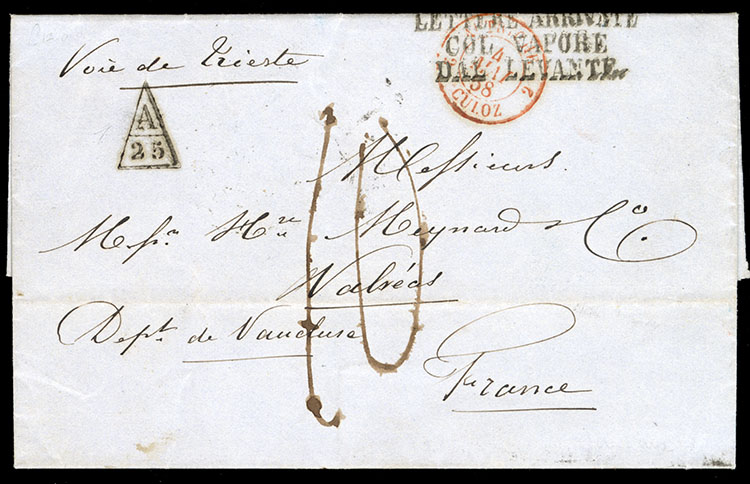 LETTERE ARRIVATE
COL VAPORE
DAL LEVANTE
4
58
CULOZ 2
Voie de Trieste
A
25
10
Messieurs
Meynard & Co
Valréas
Dept de Vaucluse
France